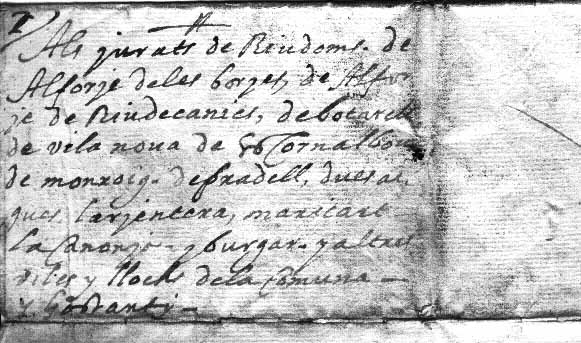 Als jurats de Riudoms. de
Alforje deles borges, de Alfor
je de Riudecanies, de botarell
de vila noua de Cornalbou
de monroig. de pradell, duesai
gues, larjentera, maricart
la Canonje y burgar. y altres
viles y llochs dela Comuna
y Costanti